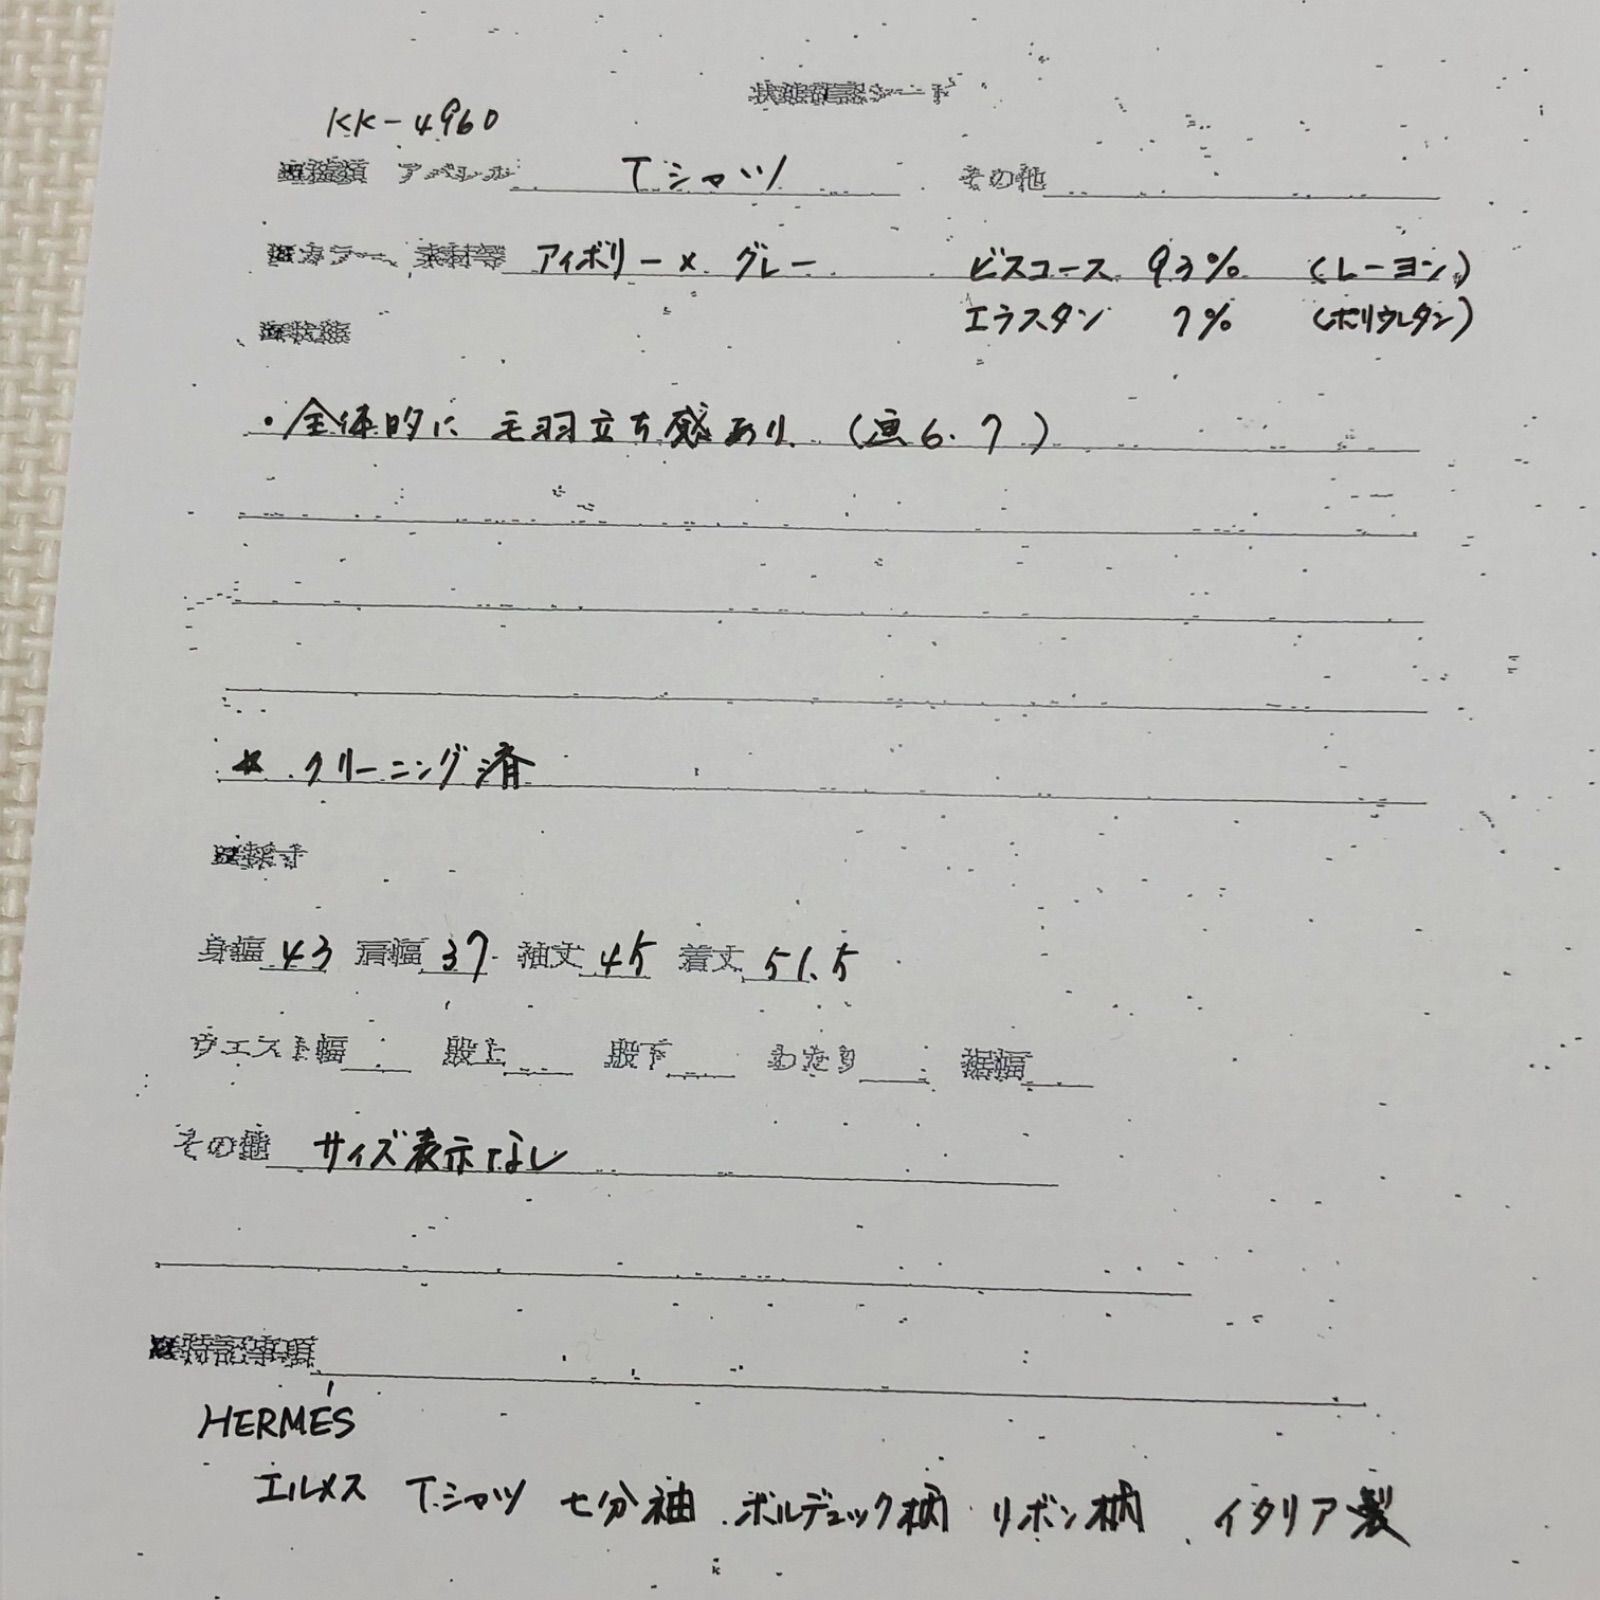 状態確認シート
KK-4960
種類 アパレル Tシャツ その他
カラー、素材等 アイボリー × グレー ビスコース 93% (レーヨン)
エラスタン 7% (ポリウレタン)
状態
・全体的に 毛羽立ち感あり (画6.7)
* クリーニング済
採寸
身幅 43 肩幅 37 袖丈 45 着丈 51.5
ウエスト幅 股上 股下 わたり 裾幅
その他 サイズ表示なし
特記事項
HERMÉS
エルメス Tシャツ 七分袖 ボルデュック柄 リボン柄 イタリア製